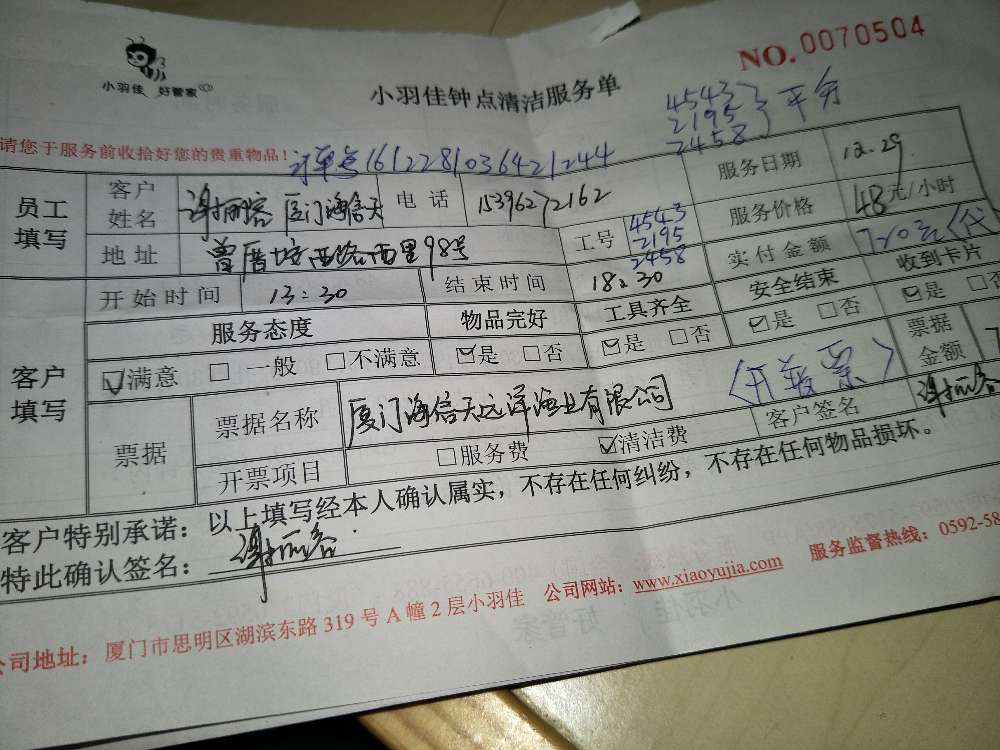 小羽佳 好管家
小羽佳钟点清洁服务单
NO.0070504
4543
2195 平分
2458
请您于服务前收拾好您的贵重物品!
订单号1612281036421244
员工填写 客户姓名 谢丽容 厦门海信天 电话 15396272162 服务日期 12.29
地址 曾厝垵西路西里98号 工号 4543 2195 2458 服务价格 48元/小时
开始时间 13:30 结束时间 18:30 实付金额 720元
客户填写 服务态度 物品完好 工具齐全 安全结束 收到卡片
☑满意 □一般 □不满意 ☑是 □否 ☑是 □否 ☑是 □否 ☑是 □否
票据 票据名称 厦门海信天远洋渔业有限公司 (开普票) 票据金额 7
开票项目 □服务费 ☑清洁费 客户签名 谢丽容
客户特别承诺:以上填写经本人确认属实,不存在任何纠纷,不存在任何物品损坏。
特此确认签名: 谢丽容
公司地址:厦门市思明区湖滨东路319号A幢2层小羽佳 公司网站:www.xiaoyujia.com 服务监督热线:0592-58